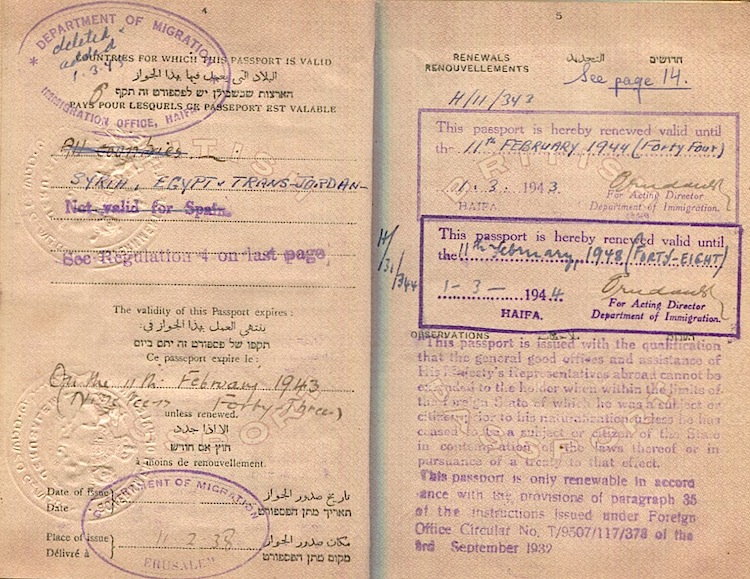 4
DEPARTMENT OF MIGRATION
deleted
added
1.3.44
IMMIGRATION OFFICE, HAIFA
COUNTRIES FOR WHICH THIS PASSPORT IS VALID
البلاد التي يعمل فيها بهذا الجواز
הארצות שבשבילן יש לפספורט זה תקף
PAYS POUR LESQUELS CE PASSEPORT EST VALABLE
All countries
SYRIA, EGYPT & TRANS-JORDAN
Not valid for Spain.
See Regulation 4 on last page
The validity of this Passport expires:
ينتهي العمل بهذا الجواز في:
תקפו של פספורט זה יתם ביום
Ce passeport expire le:
On the 11th February 1943
(Nineteen Forty-Three)
unless renewed.
الا اذا جدد
חוץ אם חודש
à moins de renouvellement.
GOVERNMENT OF MIGRATION
Date of issue
Date
تاريخ صدور الجواز
תאריך מתן הפספורט
Place of issue
Délivré à
11 2 38
مكان صدور الجواز
מקום מתן הפספורט
JERUSALEM
5
RENEWALS التجديد חדושים
RENOUVELLEMENTS
See page 14.
H/11/343
This passport is hereby renewed valid until
the 11th FEBRUARY 1944 (Forty Four)
1.3. 1943.
HAIFA.
For Acting Director
Department of Immigration.
H/31/344
This passport is hereby renewed valid until
the 11th February, 1948 (FORTY-EIGHT)
1-3- 1944.
HAIFA.
For Acting Director
Department of Immigration.
OBSERVATIONS
This passport is issued with the qualification
that the general good offices and assistance of
His Majesty's Representatives abroad cannot be
extended to the holder when within the limits of
the foreign State of which he was a subject or
citizen prior to his naturalization unless he has
ceased to be a subject or citizen of the State
in contemplation of the laws thereof or in
pursuance of a treaty to that effect.
This passport is only renewable in accord
ance with the provisions of paragraph 35
of the instructions issued under Foreign
Office Circular No. T/9507/117/378 of the
3rd September 1932